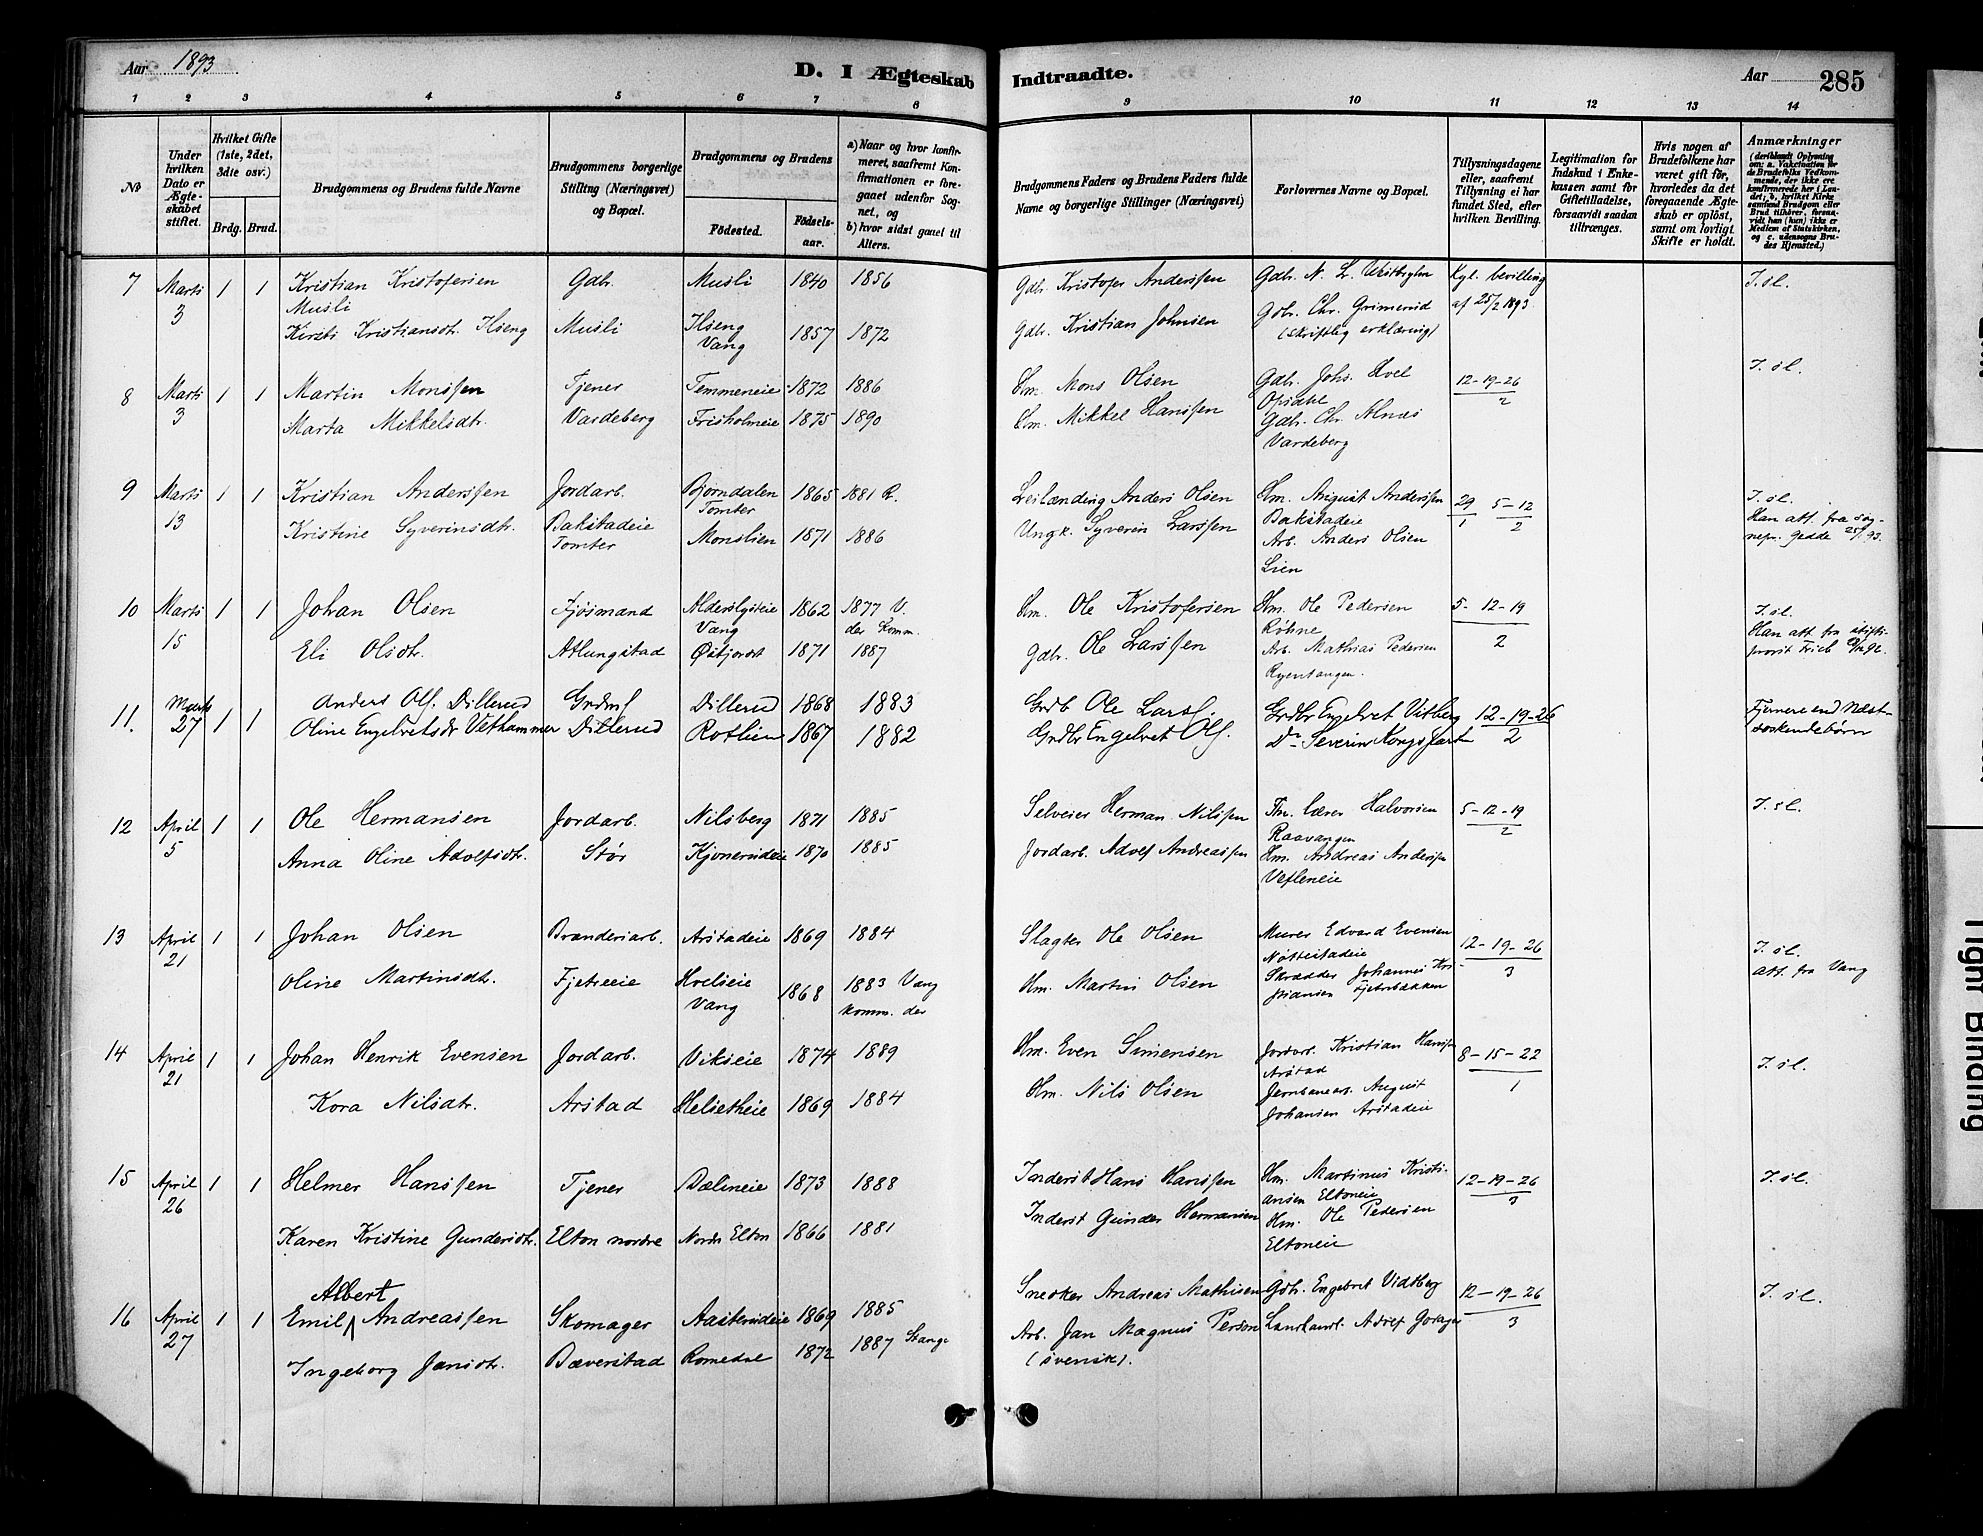 Aar 1893
D. I Ægteskab Indtraadte.
Aar 285
1 2 3 4 5 6 7 8 9 10 11 12 13 14
No
Under hvilken Dato er Ægteskabet stiftet.
Hvilket Gifte (1ste, 2det, 3die osv.)
Brdg. Brud.
Brudgommens og Brudens fulde Navne
Brudgommens borgerlige Stilling (Næringsvei) og Bopæl.
Brudgommens og Brudens
Födested. Födselsaar.
a) Naar og hvor konfirmeret, saafremt Konfirmationen er foregaaet udenfor Sognet, og
b) hvor sidst gaaet til Alters.
Brudgommens Faders og Brudens Faders fulde Navne og borgerlige Stillinger (Næringsvei)
Forlovernes Navne og Bopæl.
Tillysningsdagene eller, saafremt Tillysning ei har fundet Sted, efter hvilken Bevilling.
Legitimation for Indskud i Enkekassen samt for Giftetilladelse, forsaavidt saadan tiltrænges.
Hvis nogen af Brudefolkene har været gift før, hvorledes da det foregaaende Ægteskab er opløst, samt om lovligt Skifte er holdt.
Anmærkninger
(deriblandt Oplysning om: a. Vakcination for de Brudefolks Vedkommende, der ikke ere konfirmerede her i Landet, b. hvilket Kirkesamfund Brudgom eller Brud tilhører, forsaavidt han (hun) ikke er Medlem af Statskirken, og c. udensogns Brudes Hjemsted.)
7 Marts 3 1 1 Kristian Kristofersen Musli Gdbr. Musli 1840 1856 Gdbr. Kristofer Anderssen Gdbr. N. L. Kgl. bevilling af 25/2 1893 I. sl.
Kirsti Kristiansdtr. Ilseng Musli Ilseng Vang 1857 1872 Gdbr. Kristian Johnsen Gdbr. Chr. Grimerud (skriftlig erklæring)
8 Marts 3 1 1 Martin Monssen Tjener Temmeneie 1872 1886 Hm. Mons Olsen Gdbr. Johs. Hvel Opsahl 12-19-26/2 I. sl.
Marta Mikkelsdtr. Vardeberg Frisholmeie 1875 1890 Hm. Mikkel Hanssen Gdbr. Chr. Alnæs Vardeberg
9 Marts 13 1 1 Kristian Anderssen Jordarb. Bjørndalen Tomter 1865 1881 R. Leilænding Anders Olsen Hm. August Anderssen Bakstadeie 29/1 5-12/2 I. sl.
Kristine Syverinsdtr. Bakstadeie Tomter Monslien 1871 1886 Ungk. Syverin Larssen Arb. Anders Olsen Lien Han att. fra sognepr. Gedde 25/1 93.
10 Marts 15 1 1 Johan Olsen Fjøsmand Alderslysteie Vang 1862 1877 V. der komm. Hm. Ole Kristofersen Hm. Ole Pedersen Røhne 5-12-19/2 I. sl.
Eli Olsdtr. Atlungstad 1871 1887 Gdbr. Ole Larssen Arb. Mathias Pedersen Ryentangen. Han att. fra stiftsprovst
11. Marts 27 1 1 Anders Ols. Dillerud Grdms Dillerud 1868 1883 Grdb Ole Lars. Grdbr Engelvret Vitberg 12-19-26/2 Fjernere end Næstsøskendebørn
Oline Engelvretsdr Vethammer Dillerud Rotlien 1867 1882 Grdbr Engelvret Ols. Do Severin
12 April 5 1 1 Ole Hermansen Jordarb. Nilsberg 1871 1885 Selveier Herman Nilssen Fhv. lærer Halvorsen Raavangen 5-12-19/2 I. sl.
Anna Oline Adolfsdtr. Stør Kjonerudeie 1870 1885 Jordarb. Adolf Andreassen Hm. Andreas Anderssen Vefleneie
13 April 21 1 1 Johan Olsen Brænderiarb. Arstadeie 1869 1884 Slagter Ole Olsen Murer Edvard Evensen Nøttestadeie 12-19-26/3 I. sl.
Oline Martinsdtr. Fjetreeie Hvelseie Vang 1868 1883 Vang komm. der Hm. Martin Olsen Skrædder Johannes Kristiansen Fjetrebakken att. fra Vang
14 April 21 1 1 Johan Henrik Evensen Jordarb. Vikseie 1874 1889 Hm. Even Simensen Jordarb. Kristian Hanssen Arstad 8-15-22/1 I. sl.
Kora Nilsdtr. Arstad Helsetheie 1869 1884 Hm. Nils Olsen Jernbanearb. August Johansen Arstadeie
15 April 26 1 1 Helmer Hanssen Tjener Dælineie 1873 1888 Inderst Hans Hanssen Hm. Martinus Kristiansen Eltoneie 12-19-26/3 I. sl.
Karen Kristine Gundersdtr. Elton nordre Nordr Elton 1866 1881 Inderst Gunder Hermansen Hm. Ole Pedersen Eltoneie
16 April 27 1 1 Emil Albert Andreassen Skomager Aasterudeie 1869 1885 Snedker Andreas Mathisen Gdbr. Engebret Vidtberg 12-19-26/3 I. sl.
Ingeborg Jansdtr. Bæverstad Romedal 1872 1887 Stange Arb. Jan Magnus Person (svensk). Landhandl. Adolf
Tight Binding